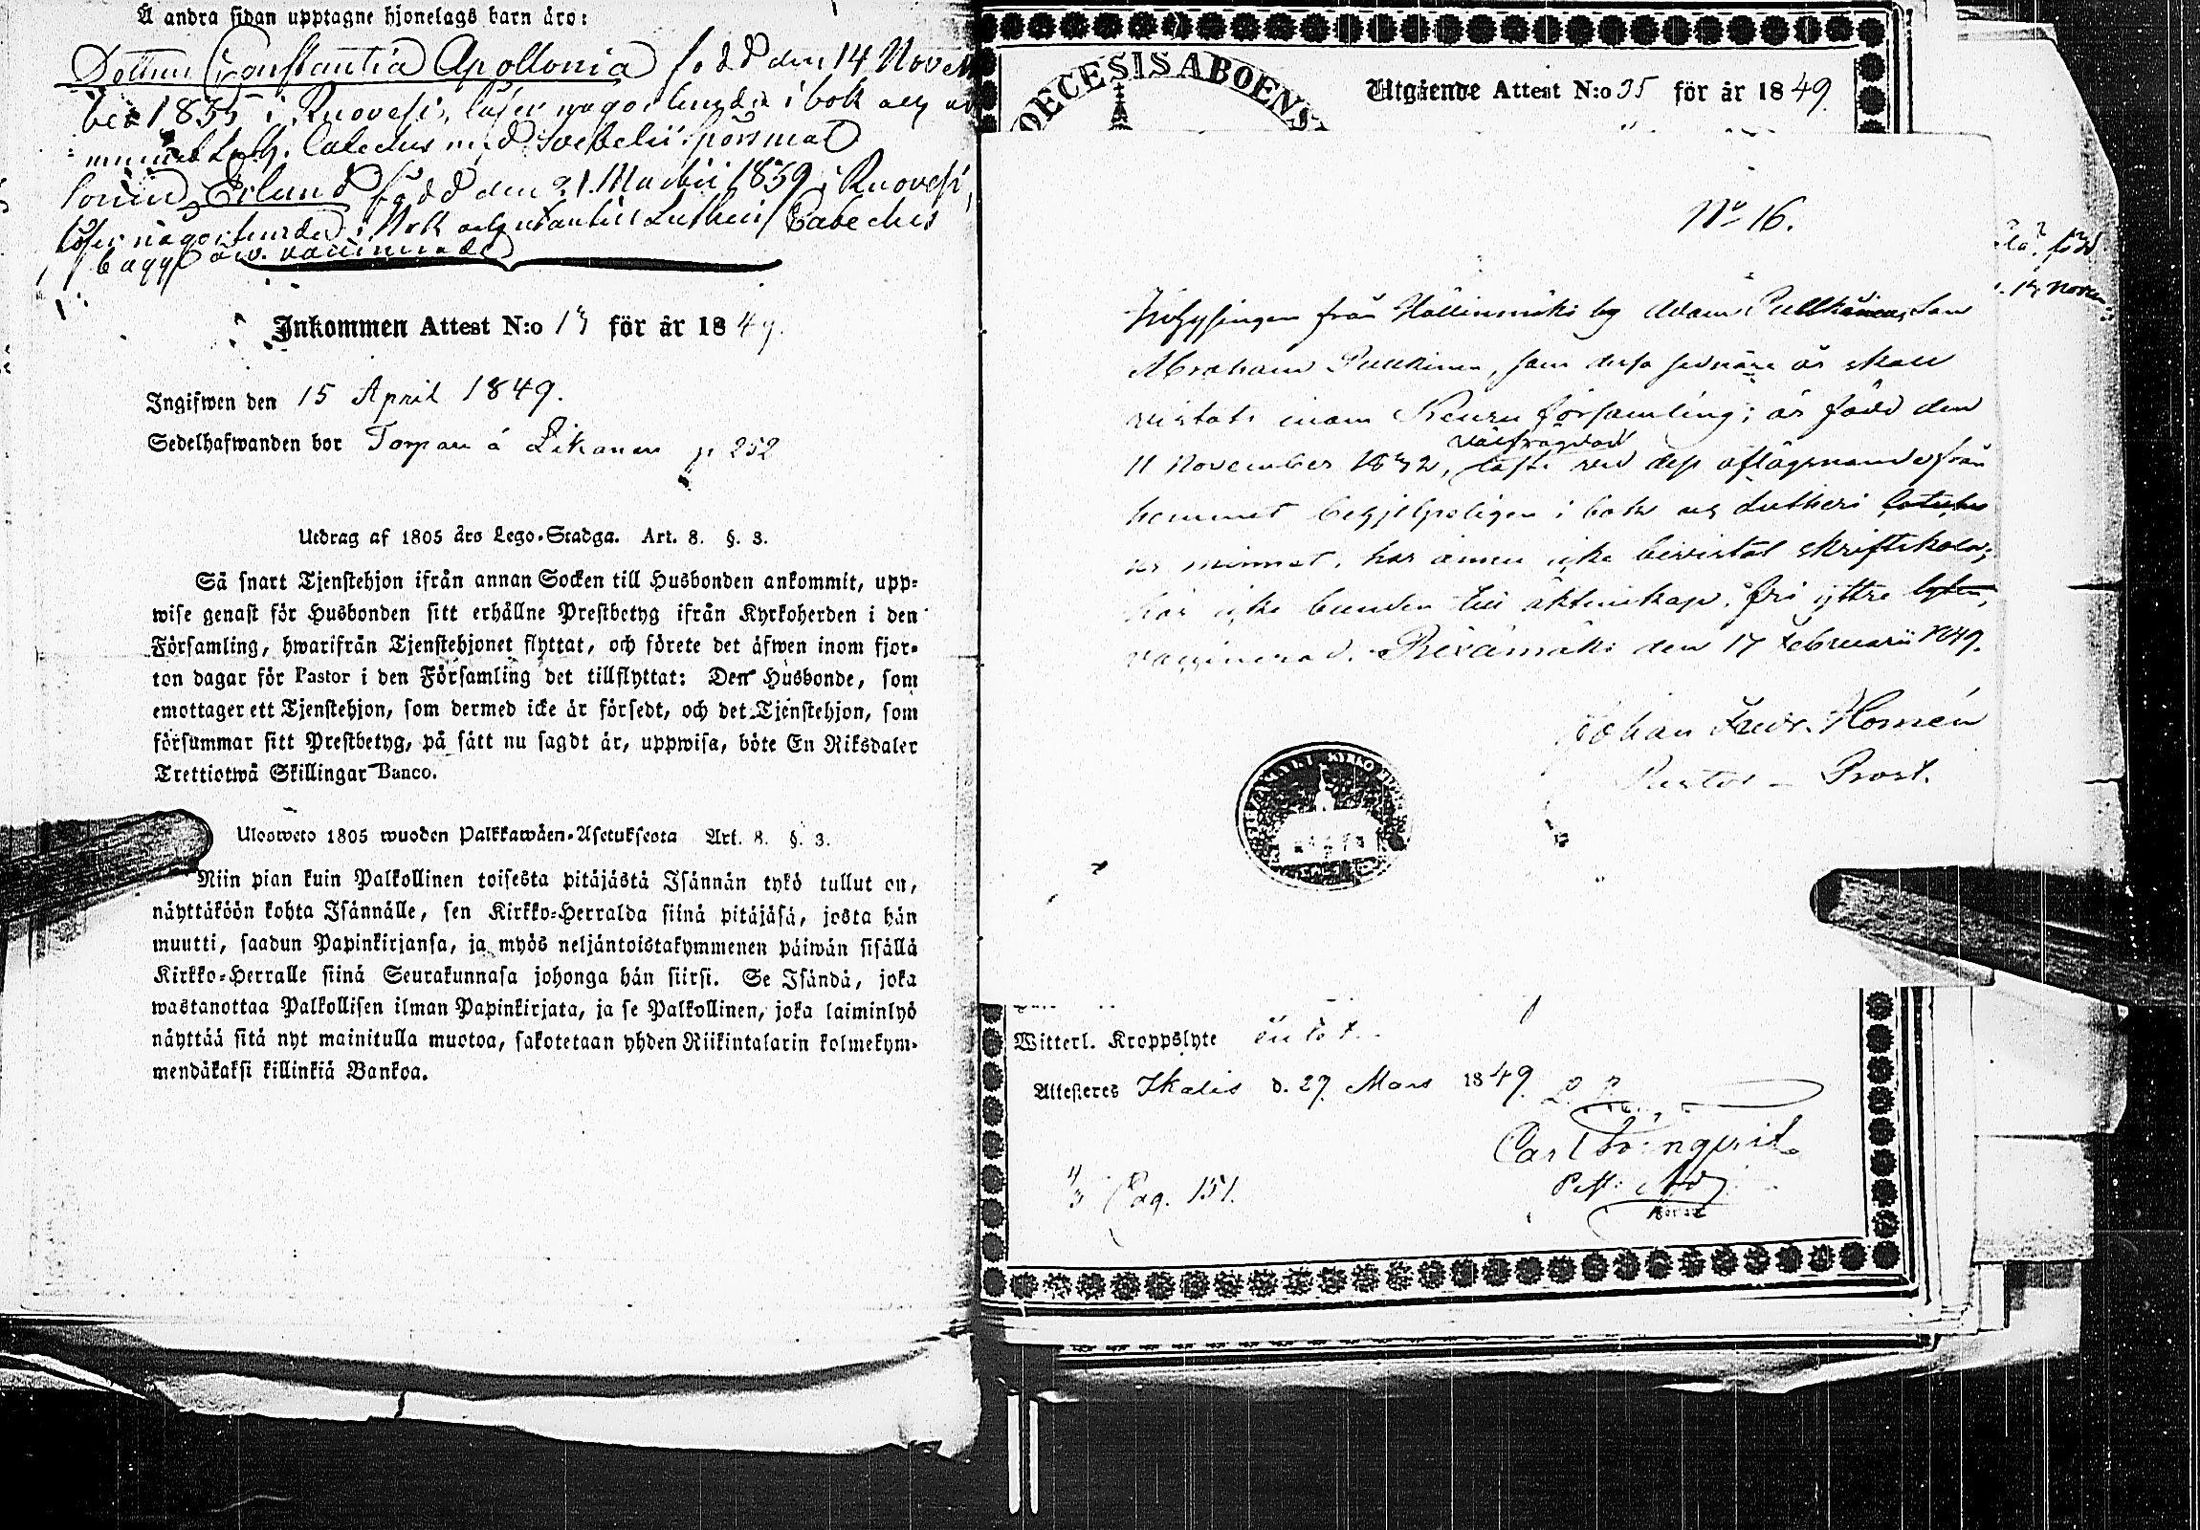 Å andra sidan upptagne hjonelags barn äro:
Dottren Constantia Apollonia född den 14 Novem
ber 1835 i Ruovesi, läser någorlunda i bok och ur
minnet Luth. Cateches med Svebelii spörsmål
Sonen Erland född den 21. Martii 1839 i Ruovesi,
läser någorlunda i bok och utantill Lutheri Cateches
bägge äro vaccinerade
Inkommen Attest N:o 13 för år 1849.
Ingifwen den 15 April 1849.
Sedelhafwanden bor Torpare å p. 252
Utdrag af 1805 års Lego-Stadga. Art. 8. §. 3.
Så snart Tjenstehjon ifrån annan Socken till Husbonden ankommit, upp-
wise genast för Husbonden sitt erhållne Prestbetyg ifrån Kyrkoherden i den
Församling, hwarifrån Tjenstehjonet flyttat, och förete det äfwen inom fjor-
ton dagar för Pastor i den Församling det tillflyttat: Den Husbonde, som
emottager ett Tjenstehjon, som dermed icke är försedt, och det Tjenstehjon, som
försummar sitt Prestbetyg, på sätt nu sagdt är, uppwisa, böte En Riksdaler
Trettiotwå Skillingar Banco.
Ulosweto 1805 wuoden Palkkawäen-Asetuksesta Art. 8. §. 3.
Niin pian kuin Palkollinen toisesta pitäjästä Isännän tykö tullut on,
näyttäköön kohta Isännälle, sen Kirkko-Herralda siinä pitäjäsä, josta hän
muutti, saadun Papinkirjansa, ja myös neljäntoistakymmenen päiwän sisällä
Kirkko-Herralle siinä Seurakunnasa johonga hän siirsi. Se Isändä, joka
wastanottaa Palkollisen ilman Papinkirjata, ja se Palkollinen, joka laiminlyö
näyttää sitä nyt mainitulla muotoa, sakotetaan yhden Riikintalarin kolmekym-
mendäkaksi killinkiä Bankoa.
OECESIS ABOENS
Utgående Attest N:o 35 för år 1849.
No 16.
från Hällinmäki by Adam Pulkkinens Son
Abraham Pulkinen, som dessa sednare år skall
vistats inom Keuru församling; är född den
välfrägdad
11 November 1832, läste vid dess aflägsnande från
hemmet begripeligen i bok och Lutheri Cateches
ur minnet, har ännu icke bevistat skriftskola,
är icke bunden till äktenskap, fri yttre lyten,
vaccinerad. Rävämäki den 17 Februarii 1849.
Johan Fredr. Homén
Pastor Prost.
född
14 Novem
Witterl. Kroppslyte
Attesteres Ikalis d. 27 Mars 1849.
Carl
Pag. 151.